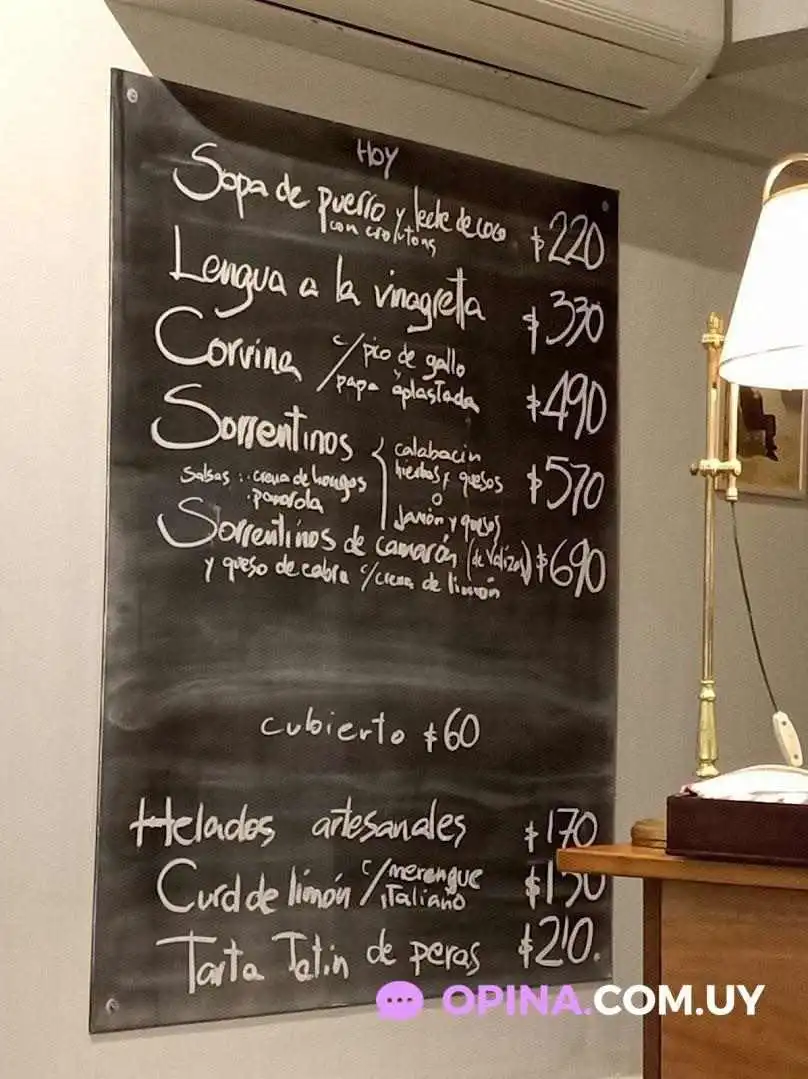 Hoy
Sopa de puerro y leche de coco $220
con croûtons
Lengua a la vinagreta $330
Corvina c/pico de gallo
y papa aplastada $490
Sorrentinos calabacin
hierbas y quesos $570
o
Jamón y quesos
Salsas: . crema de hongos
. parorola
Sorrentinos de camarón (de Valizas) $690
y queso de cabra c/crema de limón
cubierto $60
Helados artesanales $170
Curd de limón c/merengue
italiano $150
Tarta Tatin de peras $210.
OPINA.COM.UY